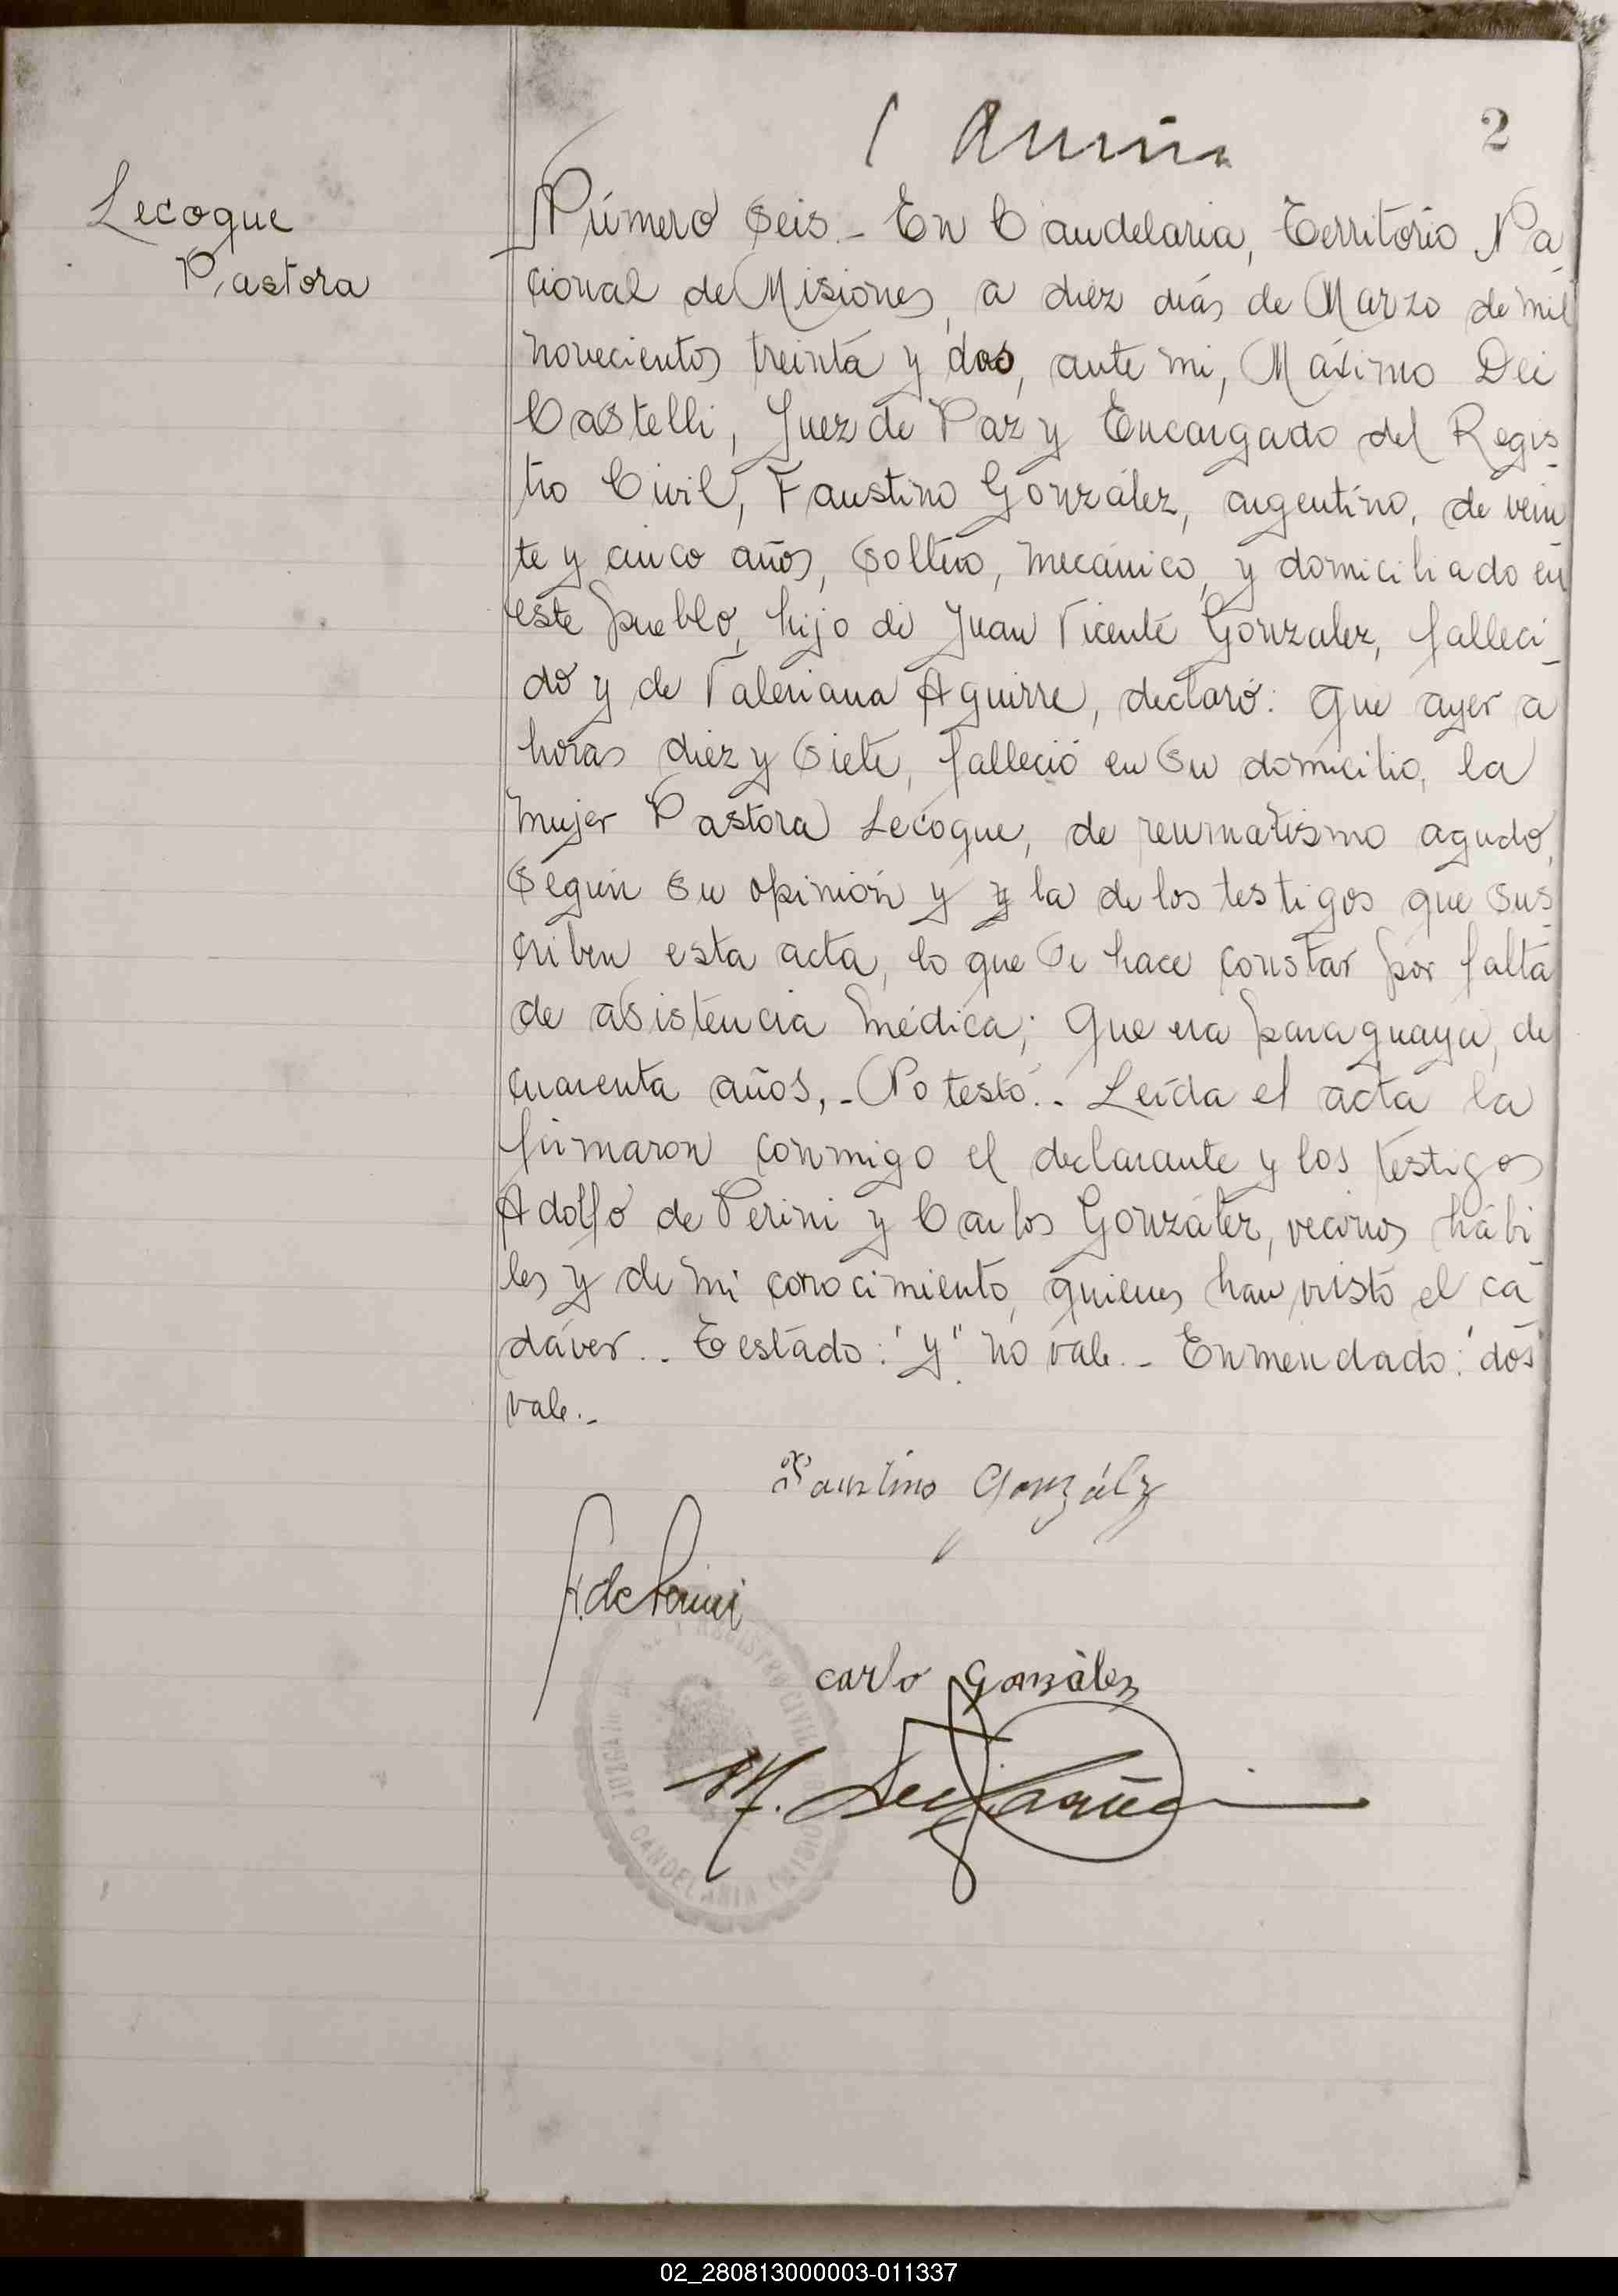 2
Lecoque
Pastora
Número Seis.- En Candelaria, Territorio Na-
cional de Misiones, a diez días de Marzo de mil
novecientos treinta y dos, ante mi, Máximo Dei
Castelli, Juez de Paz y Encargado del Regis-
tro Civil, Faustino González, argentino, de vein
te y cinco años, soltero, mecánico, y domiciliado en
este pueblo, hijo de Juan Vicente Gonzalez, falleci-
do y de Valeriana Aguirre, declaró: Que ayer a
horas diez y siete, falleció en su domicilio, la
mujer Pastora Lecoque, de reumatismo agudo,
según su opinión y y la de los testigos que sus-
criben esta acta, lo que se hace constar por falta
de asistencia médica; Que era paraguaya, de
cuarenta años,.- No testó.- Leída el acta la
firmaron conmigo el declarante y los testigos
Adolfo de Perini y Carlos González, vecinos hábi
les y de mi conocimiento, quienes han visto el ca-
dáver.- Testado: "y" no vale.- Enmendado: "dos"
vale.-
Faustino González
A. de Perini
carlo Gonzàlez
REGISTRO CIVIL
JUZGADO
CANDELARIA
02_280813000003-011337